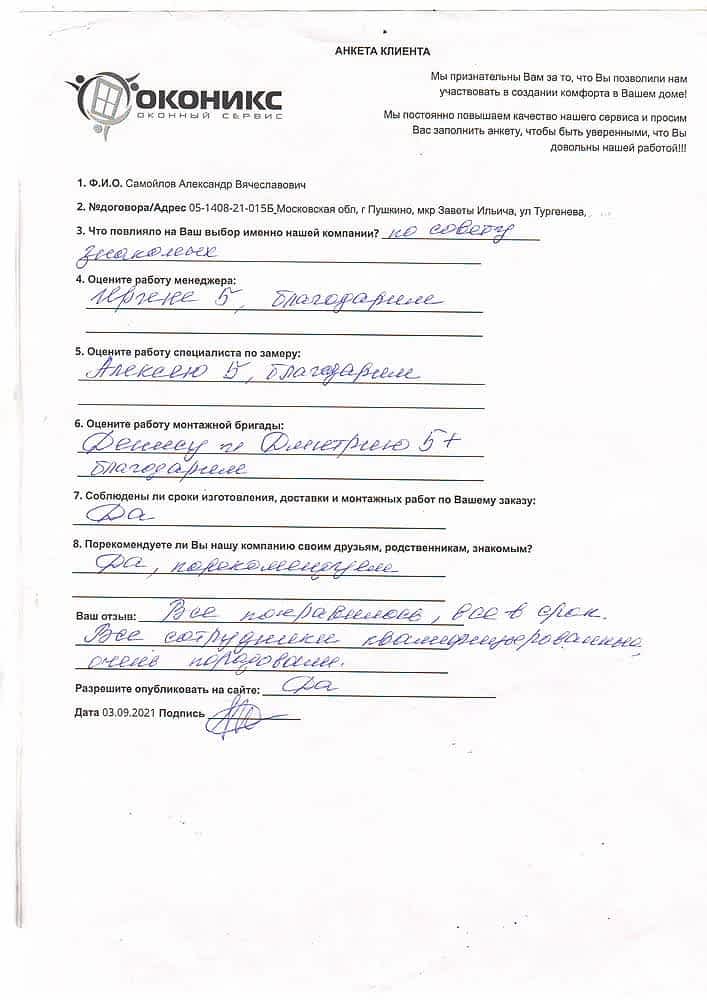 АНКЕТА КЛИЕНТА
ОКОНИКС
ОКОННЫЙ СЕРВИС
Мы признательны Вам за то, что Вы позволили нам
участвовать в создании комфорта в Вашем доме!
Мы постоянно повышаем качество нашего сервиса и просим
Вас заполнить анкету, чтобы быть уверенными, что Вы
довольны нашей работой!!!
1. Ф.И.О. Самойлов Александр Вячеславович
2. №договора/Адрес 05-1408-21-015Б Московская обл, г Пушкино, мкр Заветы Ильича, ул Тургенева,
3. Что повлияло на Ваш выбор именно нашей компании? по совету
знакомых
4. Оцените работу менеджера:
5, благодарим
5. Оцените работу специалиста по замеру:
Алексею 5, благодарим
6. Оцените работу монтажной бригады:
Денису и Дмитрию 5+
благодарим
7. Соблюдены ли сроки изготовления, доставки и монтажных работ по Вашему заказу:
Да
8. Порекомендуете ли Вы нашу компанию своим друзьям, родственникам, знакомым?
Да, порекомендуем
Ваш отзыв: Все понравилось, все в срок.
Все сотрудники квалифицированно
очень порадовали.
Разрешите опубликовать на сайте: Да
Дата 03.09.2021 Подпись